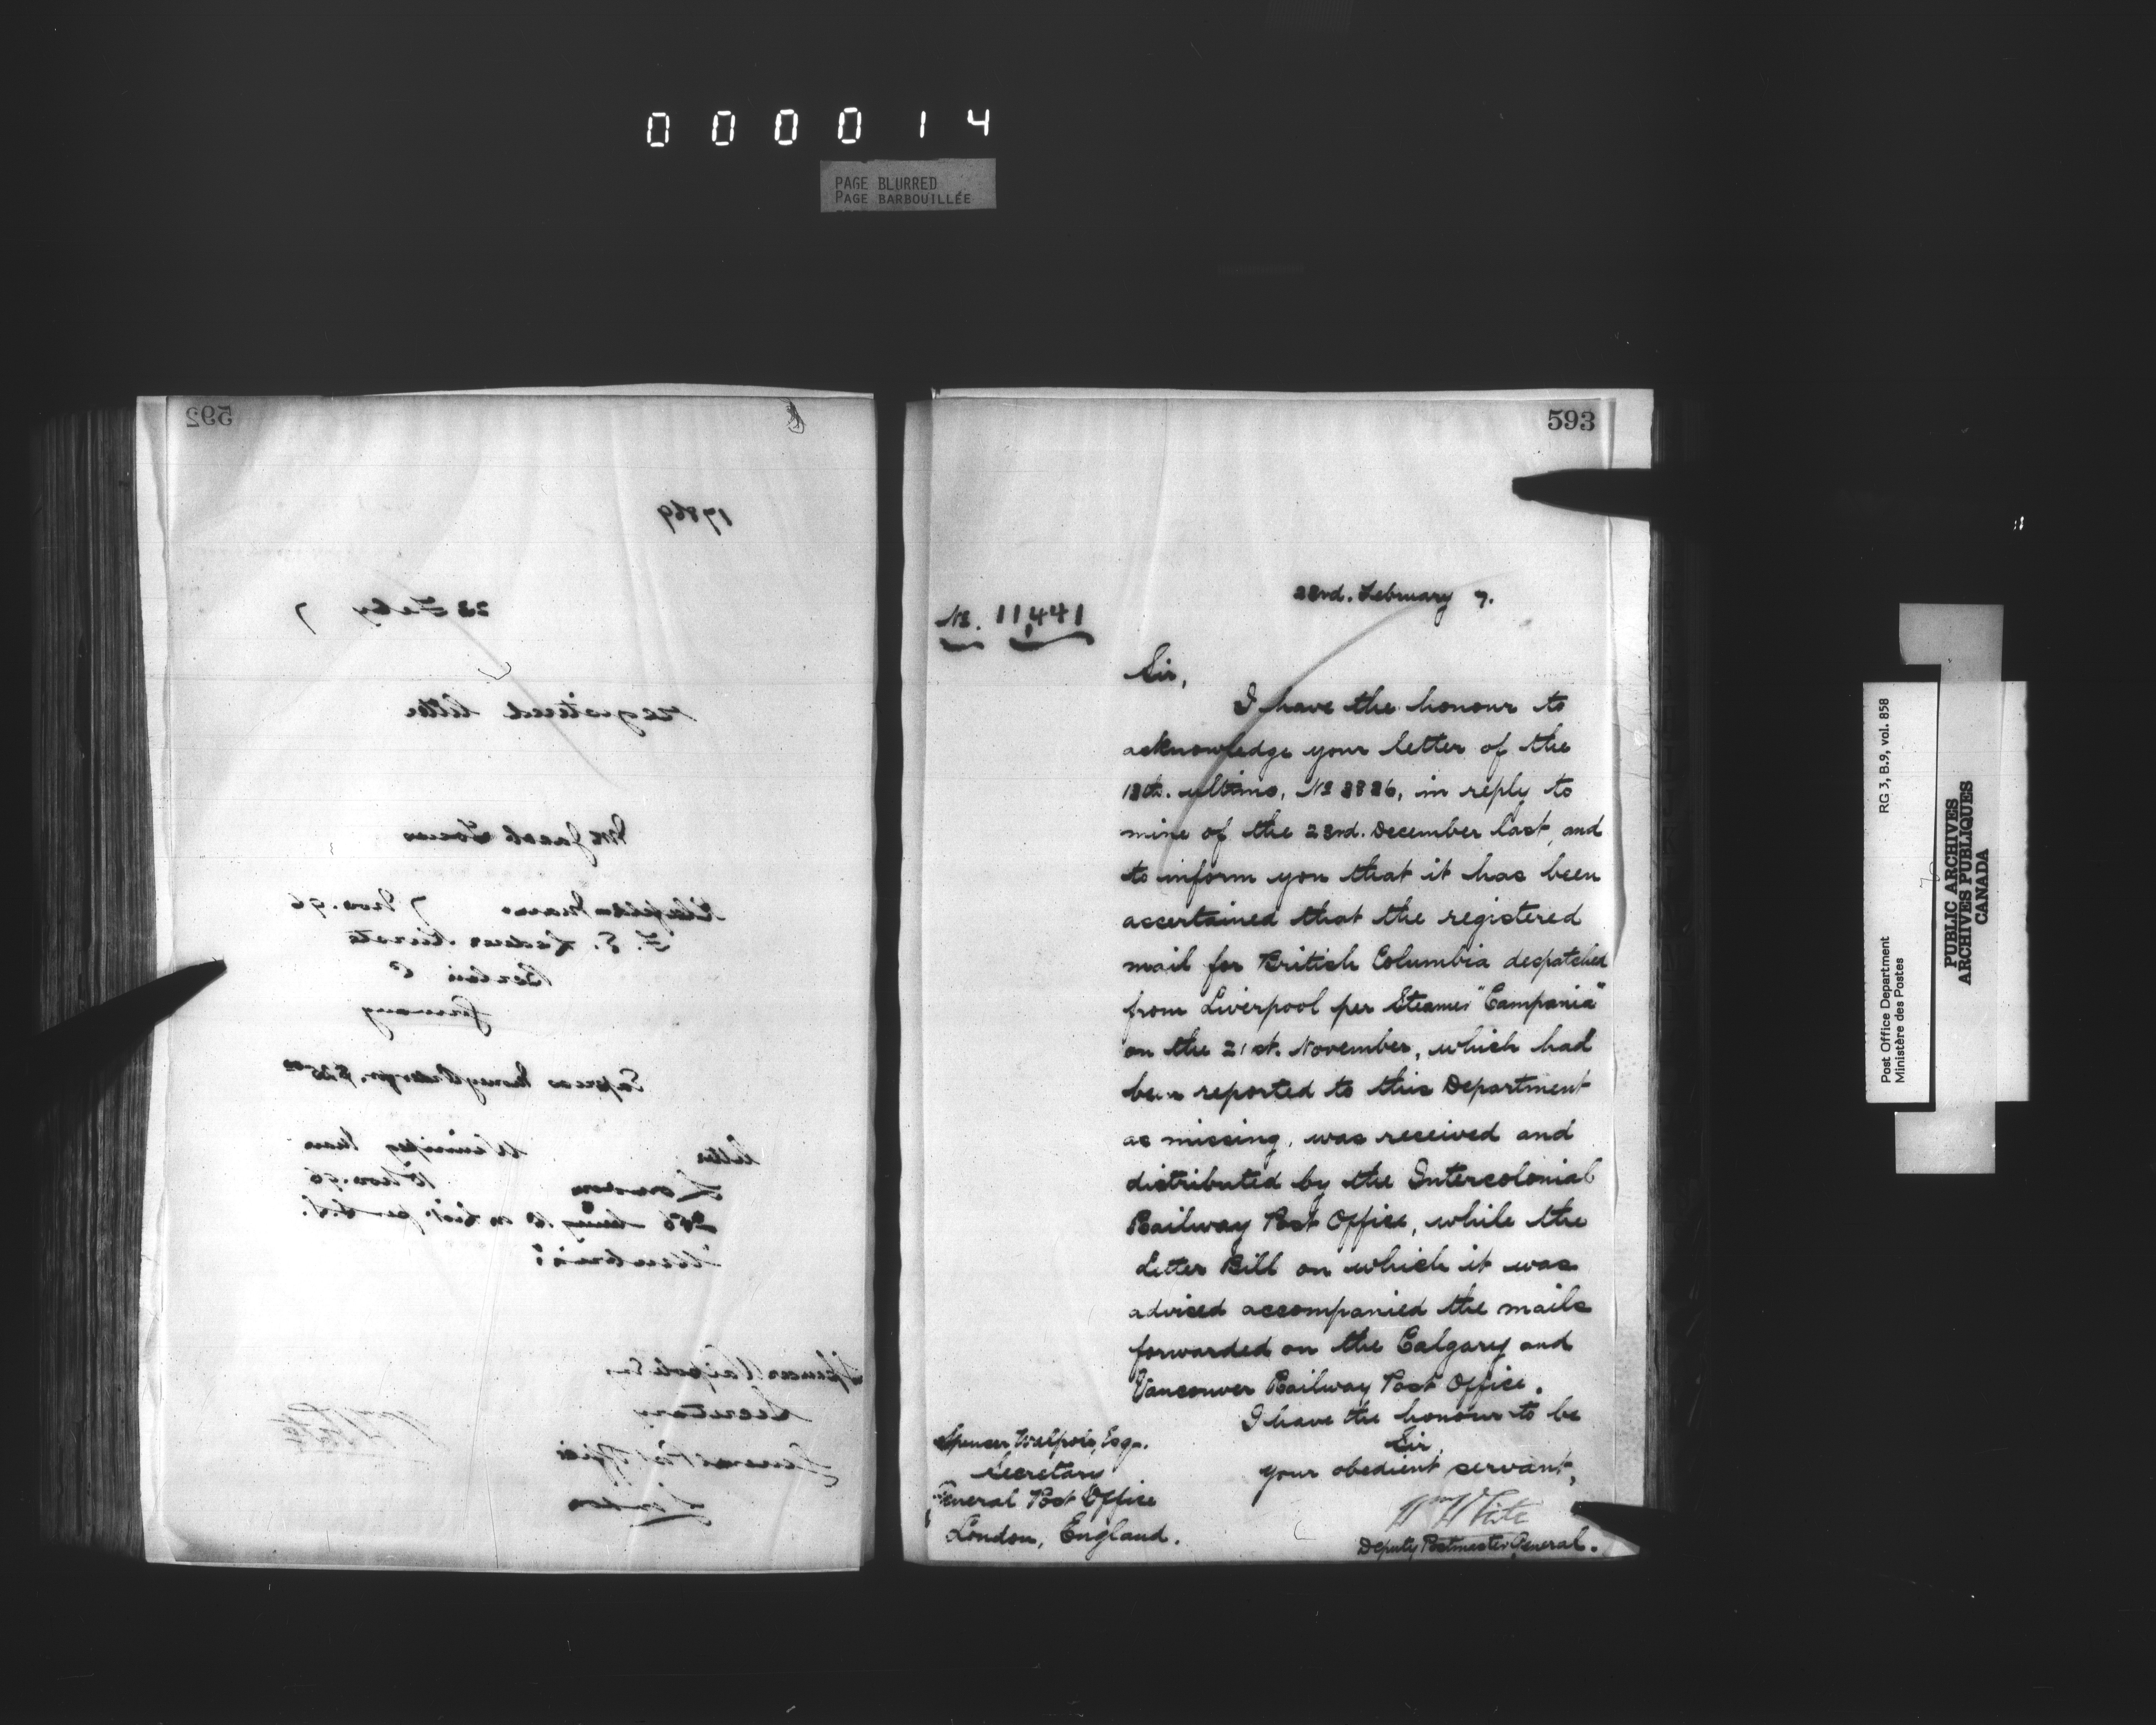 000014
PAGE BLURRED
PAGE BARBOUILLÉE
592
17869
23 Feby 7
registered letter
Mr Jacob
7 Nov. 96
F. E.
Berlin C
Germany
Express Money Order for $25 00
letter Winnipeg Man
London 10 Nov. 96
Spencer Walpole Esq
Secretary
General Post Office
London
WmWhite
593
23rd. February 7.
No. 11,441
Sir,
I have the honour to
acknowledge your letter of the
ultimo, No in reply to
mine of the 23rd. December last, and
to inform you that it has been
ascertained that the registered
mail for British Columbia despatched
from Liverpool per Steamer "Campania"
on the 21st. November, which had
been reported to this Department
as missing, was received and
distributed by the Intercolonial
Railway Post Office, while the
Letter Bill on which it was
advised accompanied the mails
forwarded on the Calgary and
Vancouver Railway Post Office.
I have the honour to be
Sir,
your obedient servant,
WmWhite
Deputy Postmaster General.
Spencer Walpole, Esq.
Secretary
General Post Office
London, England.
Post Office Department RG 3, B.9, vol. 858
Ministère des Postes
PUBLIC ARCHIVES
ARCHIVES PUBLIQUES
CANADA